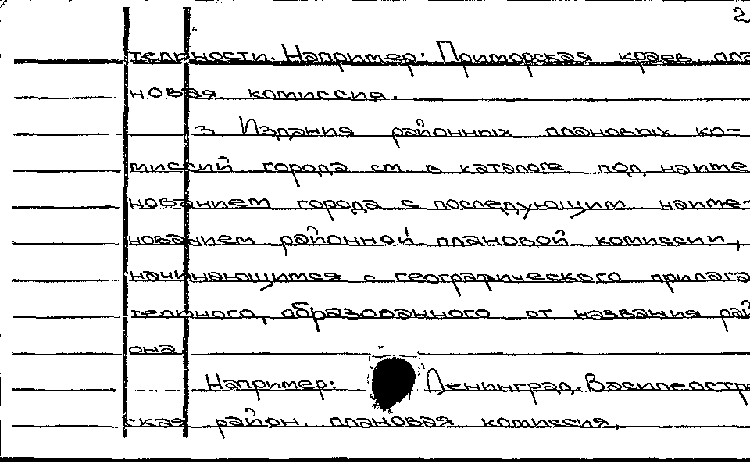 2
тельности. Например: Приморская краев. пла
новая комиссия.
3. Издания районных плановых ко-
миссий города см. в каталоге под наиме
нованием города с последующим наиме-
нованием районной плановой комиссии,
начинающимся с географического прилага
тельного, образованного от названия рай
она
Например: Ленинград. Василеостр
ская район. плановая комиссия.